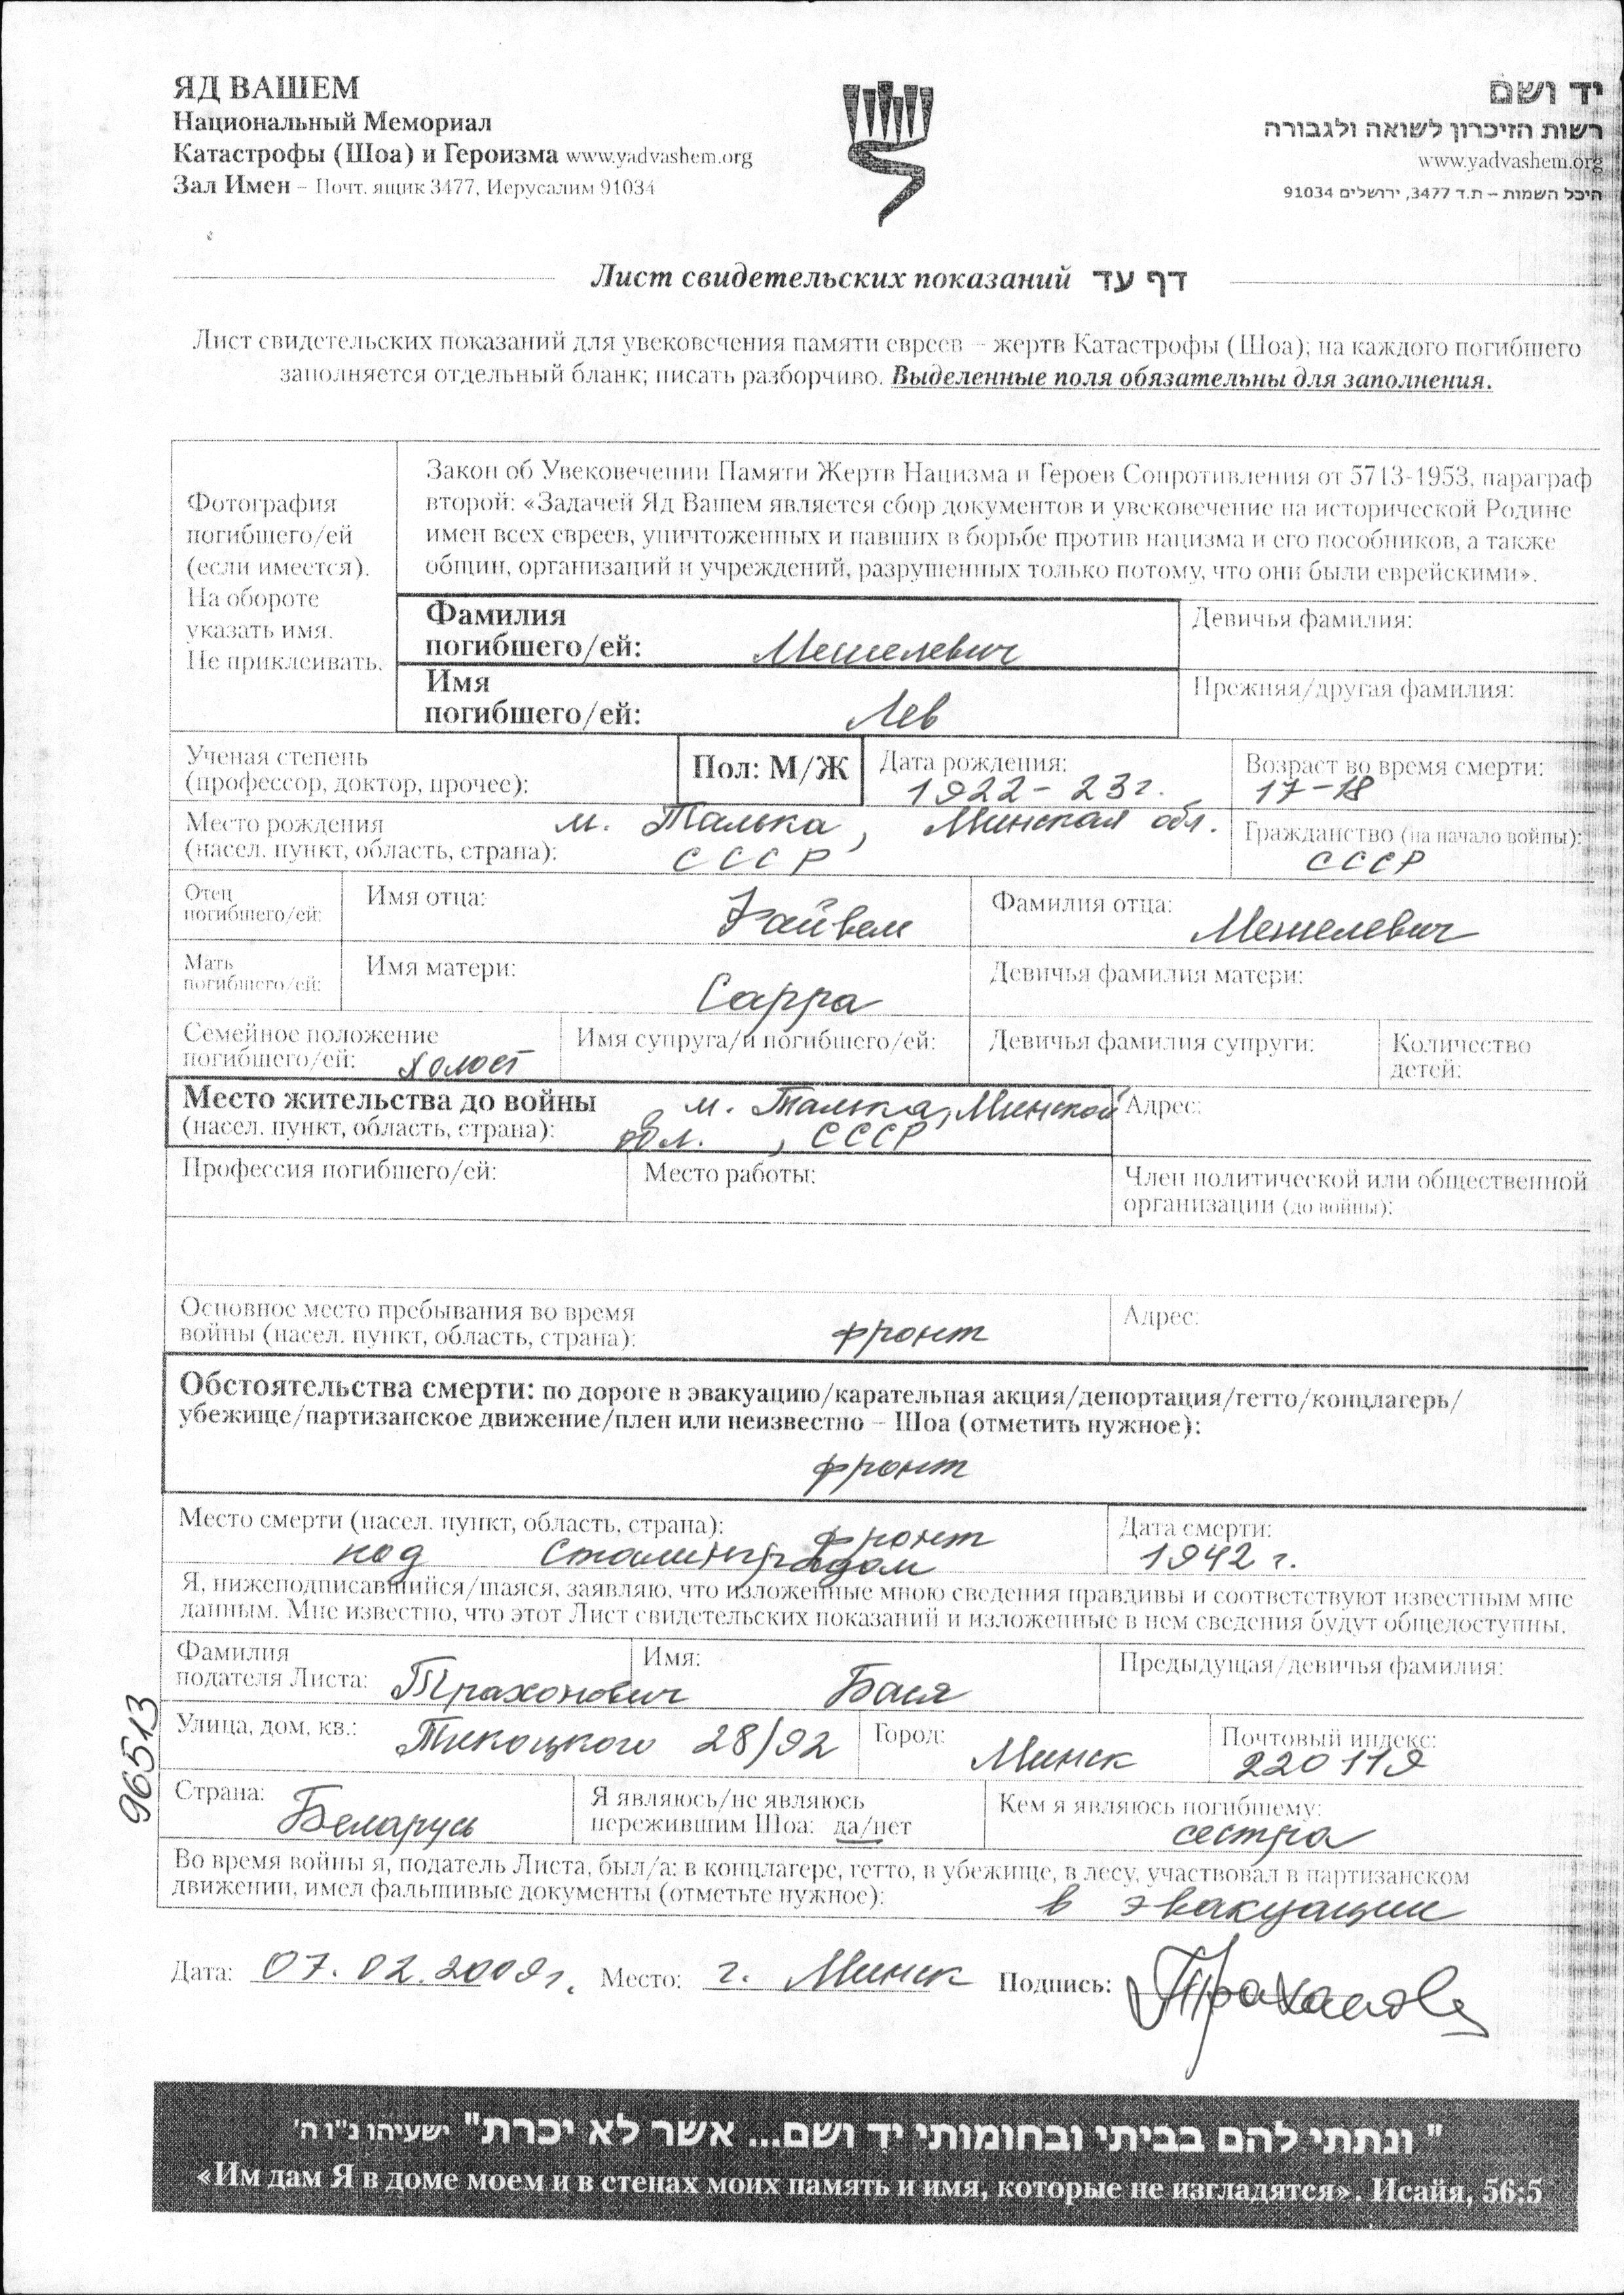 ЯД ВАШЕМ
Национальный Мемориал
Катастрофы (Шоа) и Героизма www.yadvashem.org
Зал Имен – Почт. ящик 3477, Иерусалим 91034
יד ושם
רשות הזיכרון לשואה ולגבורה
www.yadvashem.org
היכל השמות – ת.ד 3477, ירושלים 91034
Лист свидетельских показаний דף עד
Лист свидетельских показаний для увековечения памяти евреев – жертв Катастрофы (Шоа); на каждого погибшего
заполняется отдельный бланк; писать разборчиво. Выделенные поля обязательны для заполнения.
Фотография
погибшего/ей
(если имеется).
На обороте
указать имя.
Не приклеивать.
Закон об Увековечении Памяти Жертв Нацизма и Героев Сопротивления от 5713-1953, параграф
второй: «Задачей Яд Вашем является сбор документов и увековечение на исторической Родине
имен всех евреев, уничтоженных и павших в борьбе против нацизма и его пособников, а также
общин, организаций и учреждений, разрушенных только потому, что они были еврейскими».
Фамилия
погибшего/ей: Мешелевич
Девичья фамилия:
Имя
погибшего/ей: Лев
Прежняя/другая фамилия:
Ученая степень
(профессор, доктор, прочее):
Пол: М/Ж
Дата рождения:
1922-23г.
Возраст во время смерти:
17-18
Место рождения м. Талька, Минская обл.
(насел. пункт, область, страна): СССР
Гражданство (на начало войны):
СССР
Отец
погибшего/ей:
Имя отца: Файвел
Фамилия отца: Мешелевич
Мать
погибшего/ей:
Имя матери: Сарра
Девичья фамилия матери:
Семейное положение
погибшего/ей: холост
Имя супруга/и погибшего/ей:
Девичья фамилия супруги:
Количество
детей:
Место жительства до войны м. Талька, Минской
(насел. пункт, область, страна): обл. , СССР
Адрес:
Профессия погибшего/ей:
Место работы:
Член политической или общественной
организации (до войны):
Основное место пребывания во время
войны (насел. пункт, область, страна): фронт
Адрес:
Обстоятельства смерти: по дороге в эвакуацию/карательная акция/депортация/гетто/концлагерь/
убежище/партизанское движение/плен или неизвестно – Шоа (отметить нужное):
фронт
Место смерти (насел. пункт, область, страна): фронт
под Сталинградом
Дата смерти:
1942 г.
Я, нижеподписавшийся/шаяся, заявляю, что изложенные мною сведения правдивы и соответствуют известным мне
данным. Мне известно, что этот Лист свидетельских показаний и изложенные в нем сведения будут общедоступны.
Фамилия
подателя Листа: Трахонович
Имя: Бася
Предыдущая/девичья фамилия:
Улица, дом, кв.: Тикоцкого 28/92
Город: Минск
Почтовый индекс:
220119
Страна: Беларусь
Я являюсь/не являюсь
пережившим Шоа: да/нет
Кем я являюсь погибшему:
сестра
Во время войны я, податель Листа, был/а: в концлагере, гетто, в убежище, в лесу, участвовал в партизанском
движении, имел фальшивые документы (отметьте нужное): в эвакуации
Дата: 07.02.2009г. Место: г. Минск Подпись:
96513
" ונתתי להם בביתי ובחומותי יד ושם... אשר לא יכרת" ישעיהו נ"ו ה'
«Им дам Я в доме моем и в стенах моих память и имя, которые не изгладятся». Исайя, 56:5